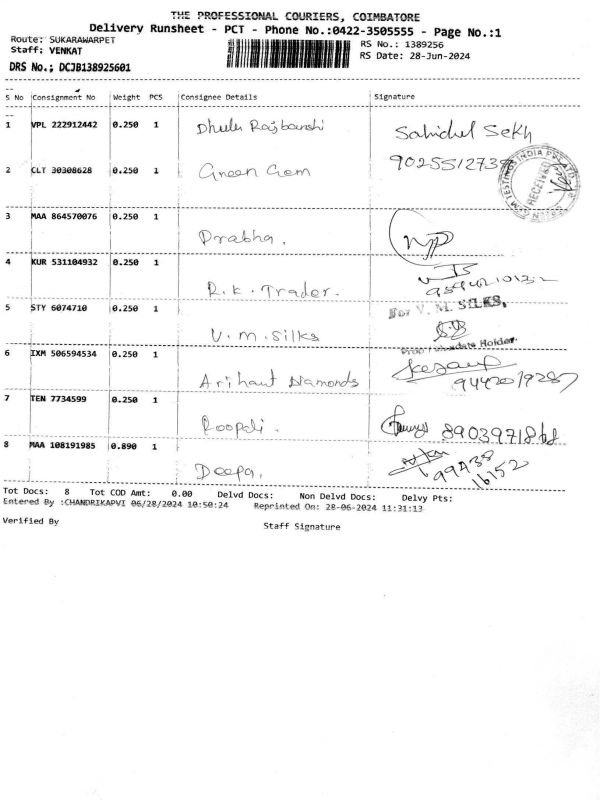 THE PROFESSIONAL COURIERS, COIMBATORE
Delivery Runsheet - PCT - Phone No.:0422-3505555 - Page No.:1
Route: SUKARAWARPET
RS No.: 1389256
Staff: VENKAT
RS Date: 28-Jun-2024
DRS No.; DCJB138925601
S No Consignment No Weight PCS Consignee Details Signature
1 VPL 222912442 0.250 1 Sahidul Sekh
2 CLT 30308628 0.250 1 Green Gem
RECEIVED
3 MAA 864570076 0.250 1 Prabha.
4 KUR 531104932 0.250 1 R.K. Trader.
5 STY 6074710 0.250 1 V.M. Silks
For V. M. SILKS,
6 IXM 506594534 0.250 1 Arihant Diamonds
7 TEN 7734599 0.250 1 Roopali.
8 MAA 108191985 0.890 1 Deepa.
99438
16152
Tot Docs: 8 Tot COD Amt: 0.00 Delvd Docs: Non Delvd Docs: Delvy Pts:
Entered By :CHANDRIKAPVI 06/28/2024 10:50:24 Reprinted On: 28-06-2024 11:31:13
Verified By Staff Signature